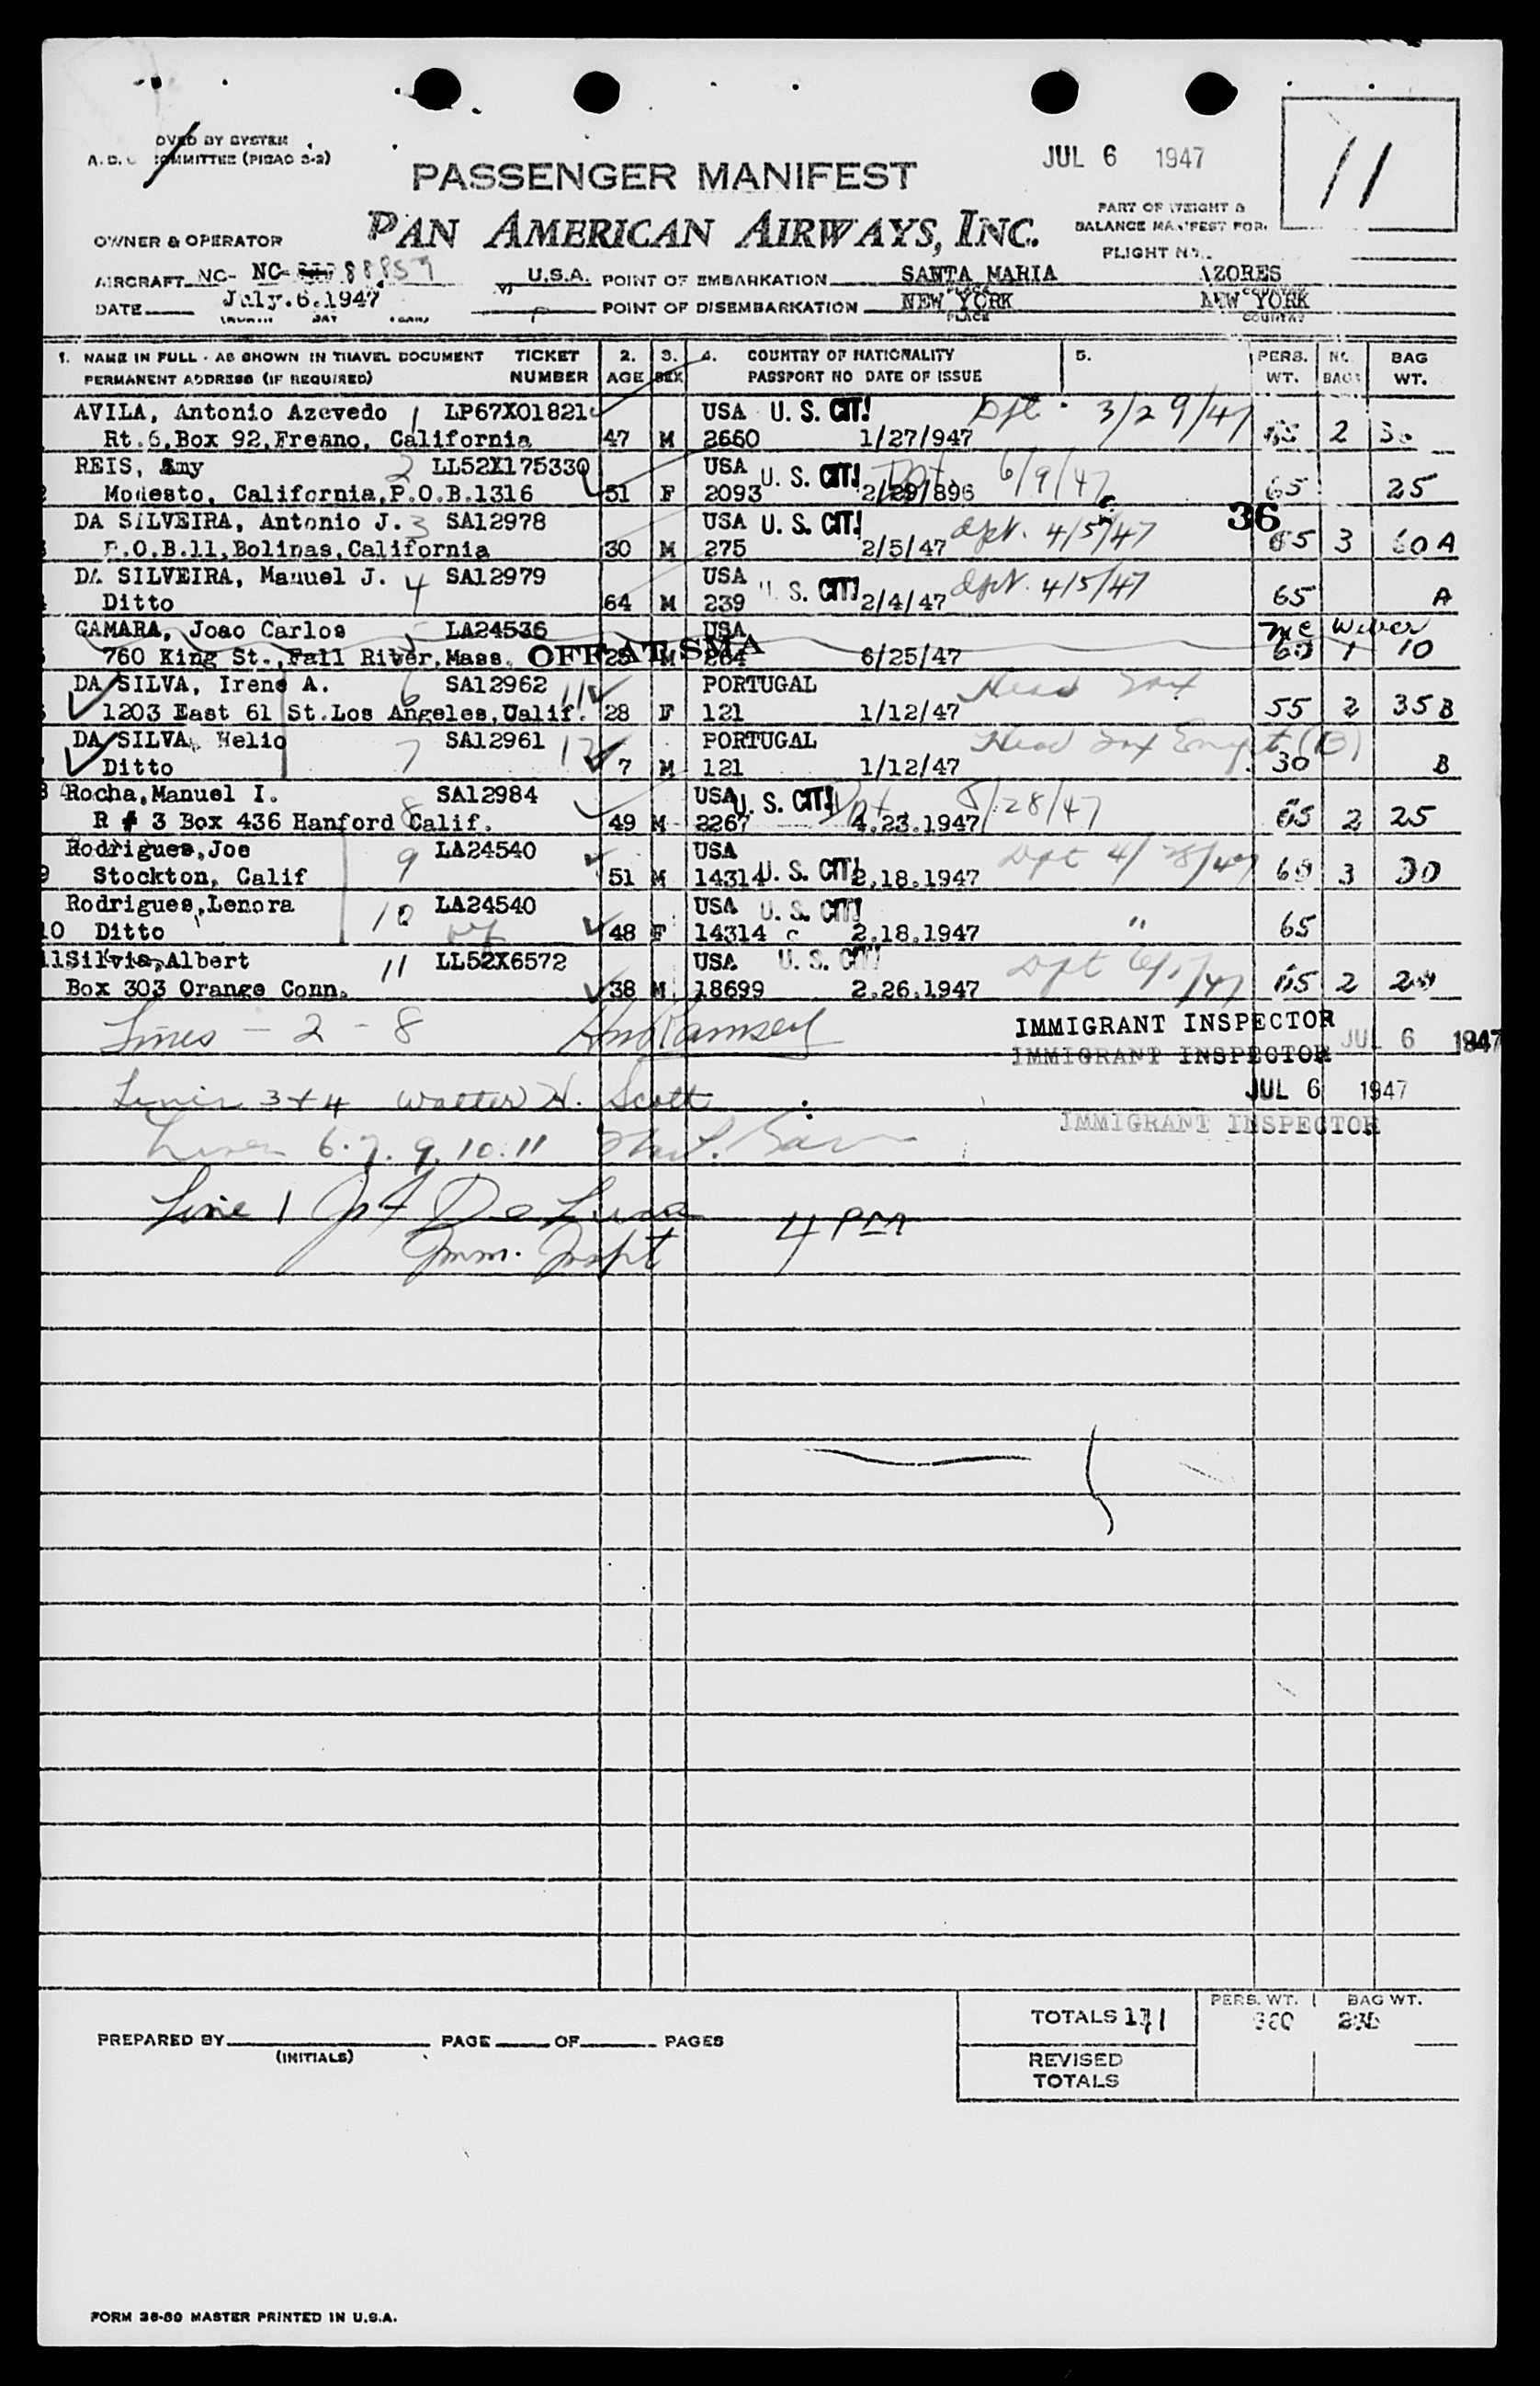 OVED BY SYSTEM
A. D. COMMITTEE (PICAO 3-2)
JUL 6 1947
11
PASSENGER MANIFEST
PAN AMERICAN AIRWAYS, INC.
PART OF WEIGHT &
BALANCE MANIFEST FOR.
FLIGHT NO.
OWNER & OPERATOR
AIRCRAFT NC- NC- 88857 U.S.A. POINT OF EMBARKATION SANTA MARIA AZORES
PLACE COUNTRY
DATE July.6.1947 POINT OF DISEMBARKATION NEW YORK NEW YORK
(MONTH DAY YEAR) PLACE COUNTRY
1. NAME IN FULL - AS SHOWN IN TRAVEL DOCUMENT TICKET 2. 3. 4. COUNTRY OF NATIONALITY 5. PERS. NO. BAG
PERMANENT ADDRESS (IF REQUIRED) NUMBER AGE SEX PASSPORT NO DATE OF ISSUE WT. BAGS WT.
AVILA, Antonio Azevedo 1 LP67X01821 USA U. S. CIT! Dpt. 3/29/47
Rt.6,Box 92,Fresno, California 47 M 2660 1/27/947 65 2 30
REIS, Amy 2 LL52X175330 USA U. S. CIT! Dpt 6/9/47
2 Modesto, California,P.O.B.1316 51 F 2093 2/29/896 65 25
DA SILVEIRA, Antonio J. 3 SA12978 USA U. S. CIT! dpt. 4/5/47 36
P.O.B.11,Bolinas,California 30 M 275 2/5/47 65 3 60 A
DA SILVEIRA, Manuel J. 4 SA12979 USA U. S. CIT! dpt. 4/5/47
Ditto 64 M 239 2/4/47 65 A
CAMARA, Joao Carlos 5 LA24536 USA Mc Wever
760 King St.,Fall River,Mass. OFF AT SMA 25 M 264 6/25/47 60 1 10
DA SILVA, Irene A. 6 SA12962 11 PORTUGAL Head Tax
1203 East 61 St.Los Angeles,Calif. 28 F 121 1/12/47 55 2 35 B
DA SILVA, Helio 7 SA12961 12 PORTUGAL Head Tax Exempt (B)
Ditto 7 M 121 1/12/47 30 B
8 Rocha,Manuel I. 8 SA12984 USA U. S. CIT! Dpt. 28/47
R # 3 Box 436 Hanford Calif. 49 M 2267 4.23.1947 65 2 25
Rodrigues,Joe 9 LA24540 USA Dpt 4/28/47
9 Stockton, Calif 51 M 14314 U. S. CIT! 2.18.1947 60 3 30
Rodrigues,Lenora 10 LA24540 USA U. S. CIT!
10 Ditto 48 F 14314 c 2.18.1947 " 65
11 Silvia,Albert 11 LL52X6572 USA U. S. CIT! Dpt
Box 303 Orange Conn. 38 M 18699 2.26.1947 65 2 20
Lines - 2 - 8 Ramsey IMMIGRANT INSPECTOR JUL 6 1947
IMMIGRANT INSPECTOR
Lines 3+4 Walter H. Scott JUL 6 1947
IMMIGRANT INSPECTOR
Lines 6.7.9.10.11
Line 1 De Luca 4 PM
Imm. Inspt
TOTALS 11 PERS. WT. BAG WT.
PREPARED BY PAGE OF PAGES
(INITIALS)
REVISED
TOTALS
FORM 36-50 MASTER PRINTED IN U.S.A.